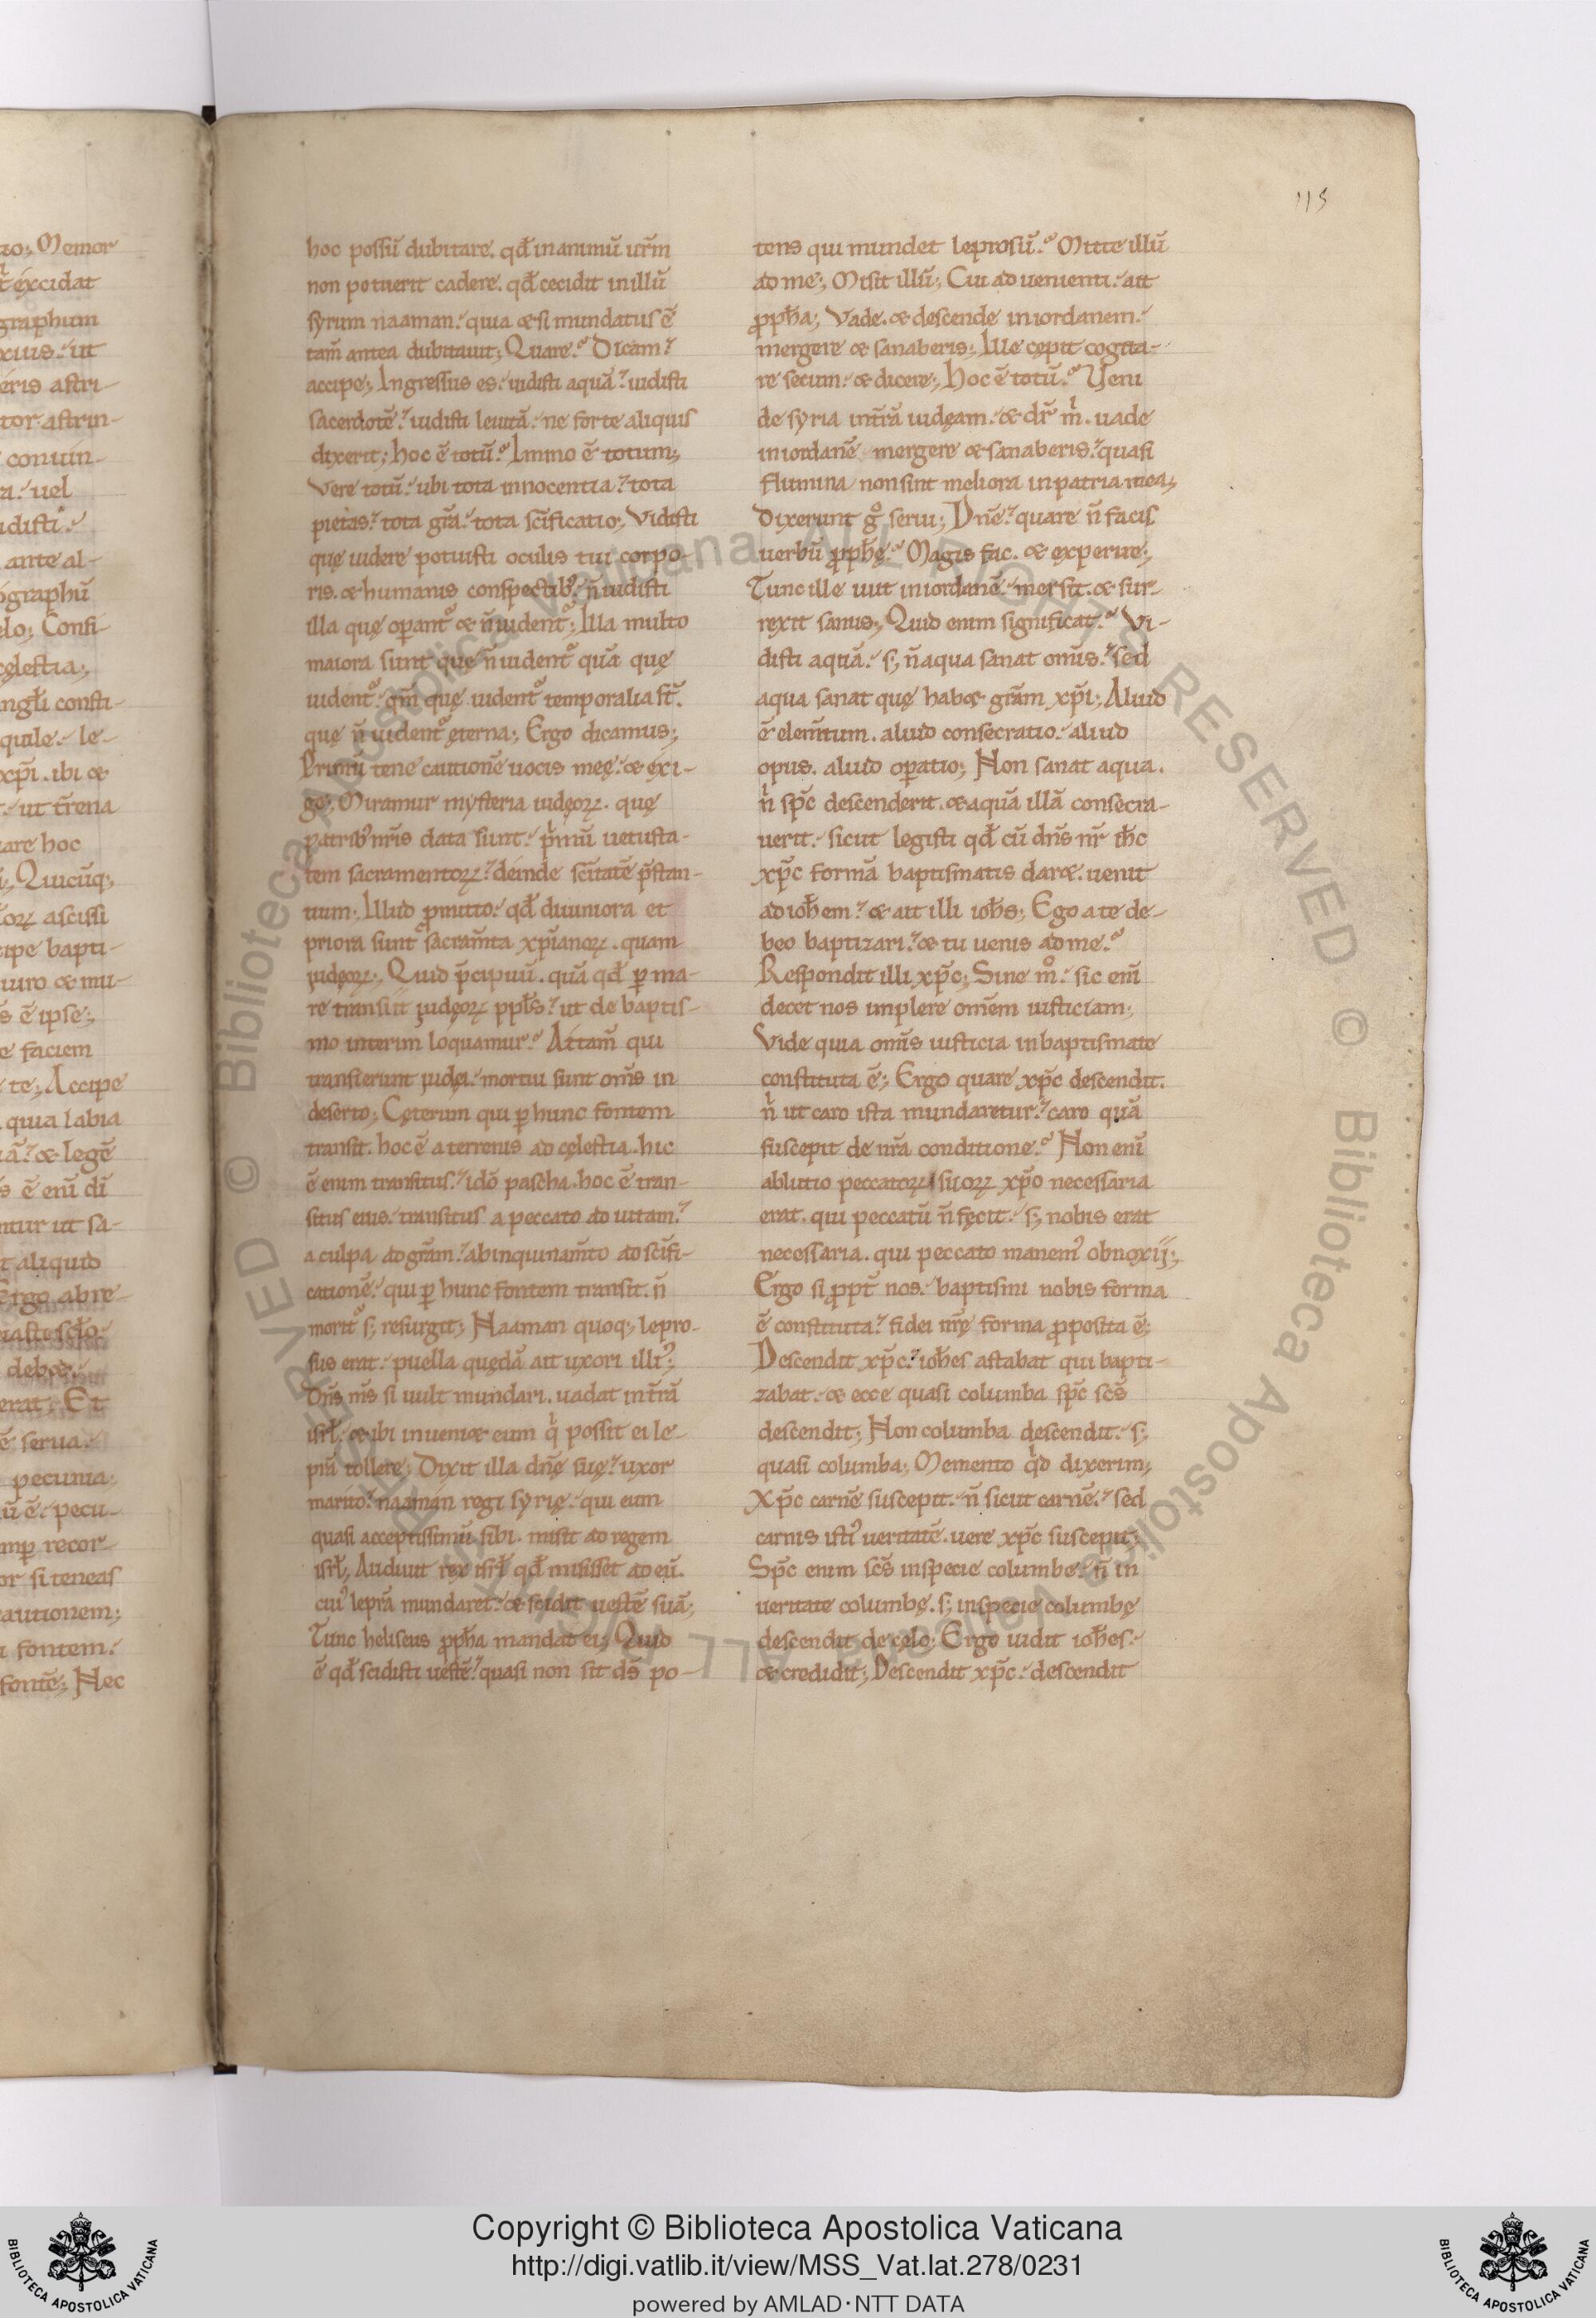 115
hoc possū dubitare. qđ in animū ur̄m
non potuerit cadere. qđ cecidit in illū
syrum naaman. quia & si mundatus ē
tam̄ antea dubitauit; Quare? Dicam
accipe; Ingressus es. uidisti aquā. uidisti
sacerdotē. uidisti leuitā. ne forte aliquis
dixerit; hoc ē totū? Immo ē totum;
Vere totū. ubi tota innocentia. tota
pietas. tota gr̄a. tota sc̄ificatio; Vidisti
quę uidere potuisti oculis tui corpo-
ris. & humanis conspectib;. n̄ uidisti
illa quę operant᷑ & n̄ uident᷑; Illa multo
maiora sunt quę n̄ uident᷑ quā quę
uident᷑. qm̄ quę uident᷑ temporalia st̄.
quę n̄ uident᷑ ęterna; Ergo dicamus;
Primū tene cautionē uocis meę. & exi-
ge; Miramur mysteria iudęoꝝ. quę
patrib; nr̄is data sunt. p̍mū uetusta-
tem sacramentoꝝ. deinde sc̄itatē p̄stan-
tium; Illud ꝓmitto. qđ diuiniora et
priora sunt sacram̄ta xp̄ianoꝝ. quam
iudęoꝝ; Quid p̄cipuū. quā qđ ꝑ ma-
re transiit iudęoꝝ ppl̄s. ut de baptis-
mo interim loquamur? Attam̄ qui
transierunt iudęi. mortui sunt om̄s in
deserto; Cęterum qui ꝑ hunc fontem
transit. hoc ē a terrenis ad cęlestia. hic
ē enim transitus. idō pascha. hoc ē tran-
situs eius. transitus a peccato ad uitam.
a culpa ad gr̄am. ab inquinam̄to ad sc̄ifi-
cationē. qui ꝑ hunc fontem transit. n̄
morit᷑ s; resurgit; Naaman quoq; lepro-
sus erat. puella quędā ait uxori illi᷒;
Dn̄s m̄s si uult mundari. uadat in t̄rā
isrl̄. & ibi inueni& eum q̍ possit ei le-
prā tollere; Dixit illa dn̄ę suę. uxor
marito. naaman regi syrię. qui eum
quasi acceptissimū sibi. misit ad regem
isrl̄; Audiuit rex isrl̄ qđ misisset ad eū.
cui᷒ leprā mundaret. & scidit uestē suā;
Tunc heliseus ꝓph̄a mandat ei; Quid
ē qđ scidisti uestē. quasi non sit ds̄ po-
tens qui mundet leprosū? Mitte illū
ad me; Misit illū; Cui aduenienti. ait
ꝓph̄a; Vade. & descende in iordanem.
mergere & sanaberis; Ille cępit cogita-
re secum. & dicere; Hoc ē totū? Veni
de syria in t̄rā iudęam. & dr̄ m̍. uade
in iordanē mergere & sanaberis. quasi
flumina non sint meliora in patria mea;
Dixerunt g̊ serui; Dn̄e. quare n̄ facis
uerbū ꝓph̄ę? Magis fac. & experire;
Tunc ille iuit in iordanē. mersit. & sur-
rexit sanus; Quid enim significat? Vi-
disti aquā. s; n̄ aqua sanat om̄s. sed
aqua sanat quę hab& gr̄am xp̄i; Aliud
ē elem̄tum. aliud consecratio. aliud
opus. aliud oꝑatio; Non sanat aqua.
n̍ sp̄c descenderit. & aquā illā consecra-
uerit. sicut legisti qđ cū dn̄s nr̄ ih̄c
xp̄c formā baptismatis dar&. uenit
ad ioh̄em. & ait illi ioh̄s; Ego a te de-
beo baptizari. & tu uenis ad me?
Respondit illi xp̄c; Sine m̊. sic eni̅
decet nos implere om̄em iusticiam;
Vide quia om̄is iusticia in baptismate
constituta ē; Ergo quare xp̄c descendit.
n̍ ut caro ista mundaretur. caro quā
suscepit de nr̄a conditione? Non eni̅
ablutio peccatoꝝ suoꝝ xp̄o necessaria
erat. qui peccatū n̄ fęcit. s; nobis erat
necessaria. qui peccato manem᷒ obnoxij;
Ergo si ꝓpt̄ nos. baptismi nobis forma
ē constituta. fidei nr̄ę forma ꝓposita ē;
Descendit xp̄c. ioh̄es astabat qui bapti-
zabat. & ecce quasi columba sp̄c sc̄s
descendit; Non columba descendit. s;
quasi columba; Memento q̍d dixerim;
Xp̄c carnē suscepit. n̄ sicut carnē. sed
carnis isti᷒ ueritatē. uere xp̄c suscepit;
Sp̄c enim sc̄s in specie columbe. n̄ in
ueritate columbę. s; in specie columbę
descendit de cęlo; Ergo uidit ioh̄es.
& credidit; Descendit xp̄c. descendit
Copyright © Biblioteca Apostolica Vaticana
http://digi.vatlib.it/view/MSS_Vat.lat.278/0231
powered by AMLAD·NTT DATA